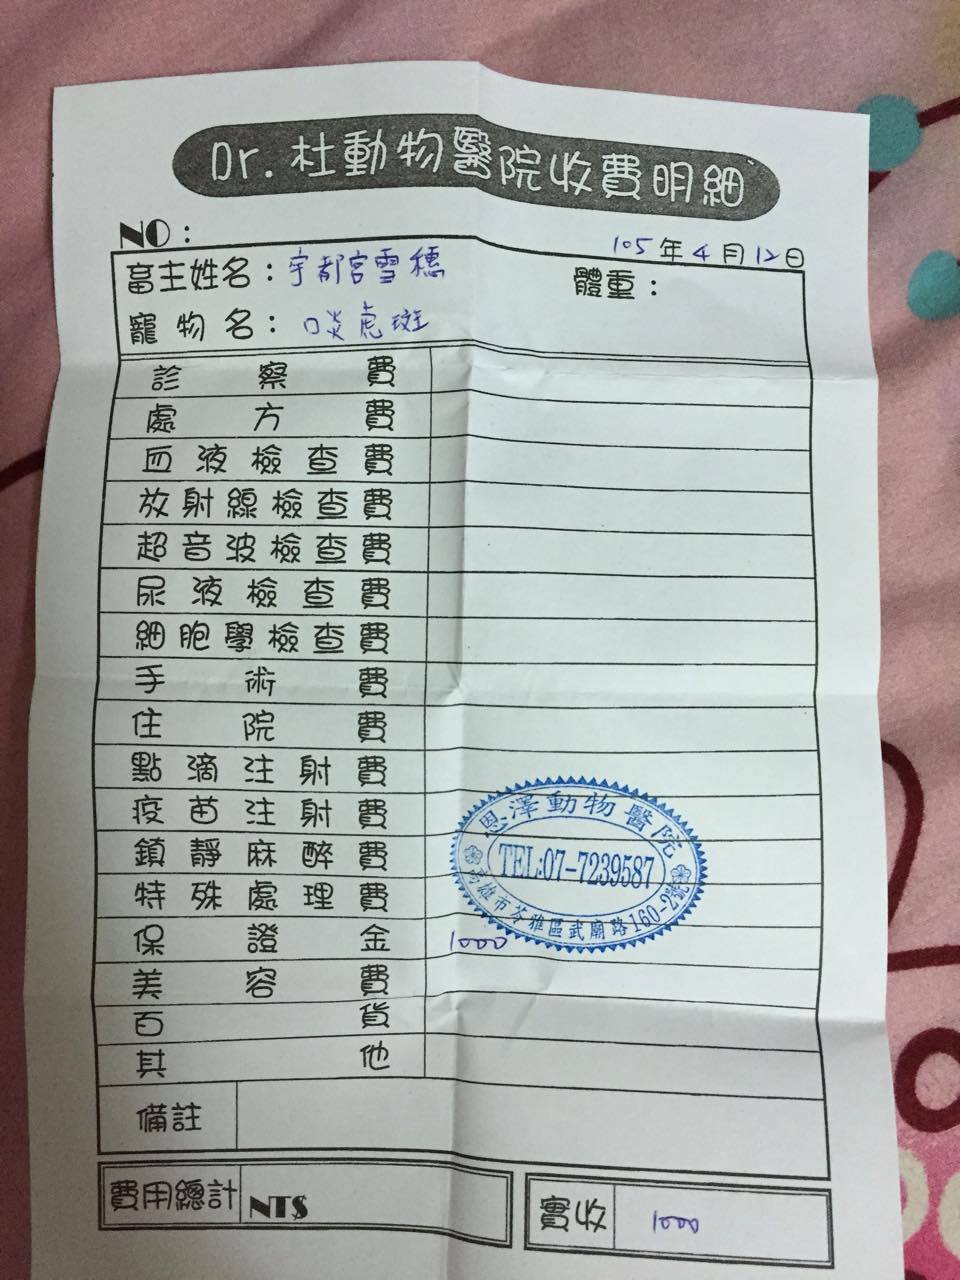 Dr.杜動物醫院收費明細
NO：
105年4月12日
畜主姓名：宇都宮雪穗
體重：
寵物名：啖虎斑
診察費
處方費
血液檢查費
放射線檢查費
超音波檢查費
尿液檢查費
細胞學檢查費
手術費
住院費
點滴注射費
疫苗注射費
鎮靜麻醉費
特殊處理費
保證金 1000
美容費
百貨
其他
備註
恩澤動物醫院
TEL:07-7239587
高雄市苓雅區武廟路160-2號
費用總計 NT$
實收 1000